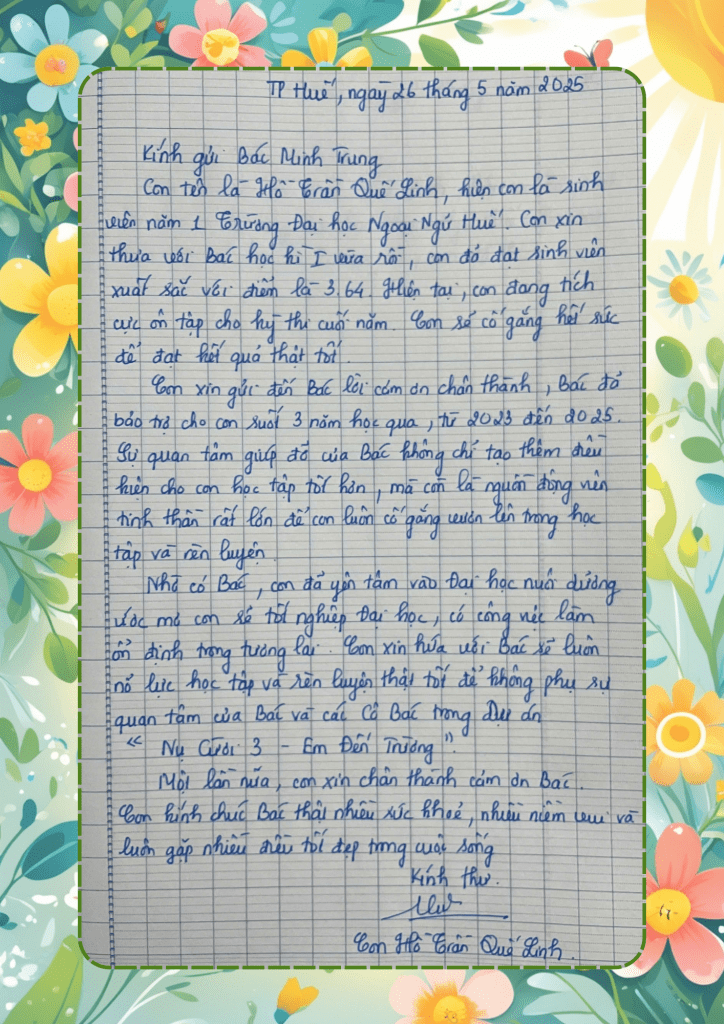 TP Huế, ngày 26 tháng 5 năm 2025
Kính gửi Bác Minh Trung
Con tên là Hồ Trần Quế Linh, hiện con là sinh
viên năm 1 Trường Đại học Ngoại Ngữ Huế. Con xin
thưa với Bác học kì I vừa rồi, con đã đạt sinh viên
xuất sắc với điểm là 3.64. Hiện tại, con đang tích
cực ôn tập cho kỳ thi cuối năm. Con sẽ cố gắng hết sức
để đạt kết quả thật tốt.
Con xin gửi đến Bác lời cám ơn chân thành, Bác đã
bảo trợ cho con suốt 3 năm học qua, từ 2023 đến 2025.
Sự quan tâm giúp đỡ của Bác không chỉ tạo thêm điều
kiện cho con học tập tốt hơn, mà còn là nguồn động viên
tinh thần rất lớn để con luôn cố gắng vươn lên trong học
tập và rèn luyện.
Nhờ có Bác, con đã yên tâm vào Đại học nuôi dưỡng
ước mơ con sẽ tốt nghiệp Đại học, có công việc làm
ổn định trong tương lai. Con xin hứa với Bác sẽ luôn
nỗ lực học tập và rèn luyện thật tốt để không phụ sự
quan tâm của Bác và các Cô Bác trong Dự án
" Nụ Cười 3 - Em Đến Trường ".
Một lần nữa, con xin chân thành cám ơn Bác.
Con kính chúc Bác thật nhiều sức khoẻ, nhiều niềm vui và
luôn gặp nhiều điều tốt đẹp trong cuộc sống
Kính thư.
Con Hồ Trần Quế Linh.